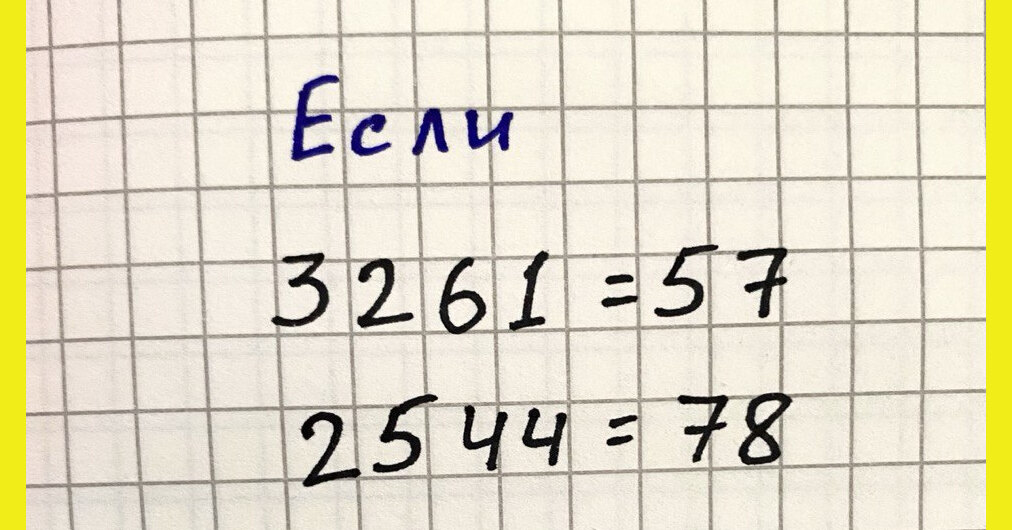 Если
3261 = 57
2544 = 78